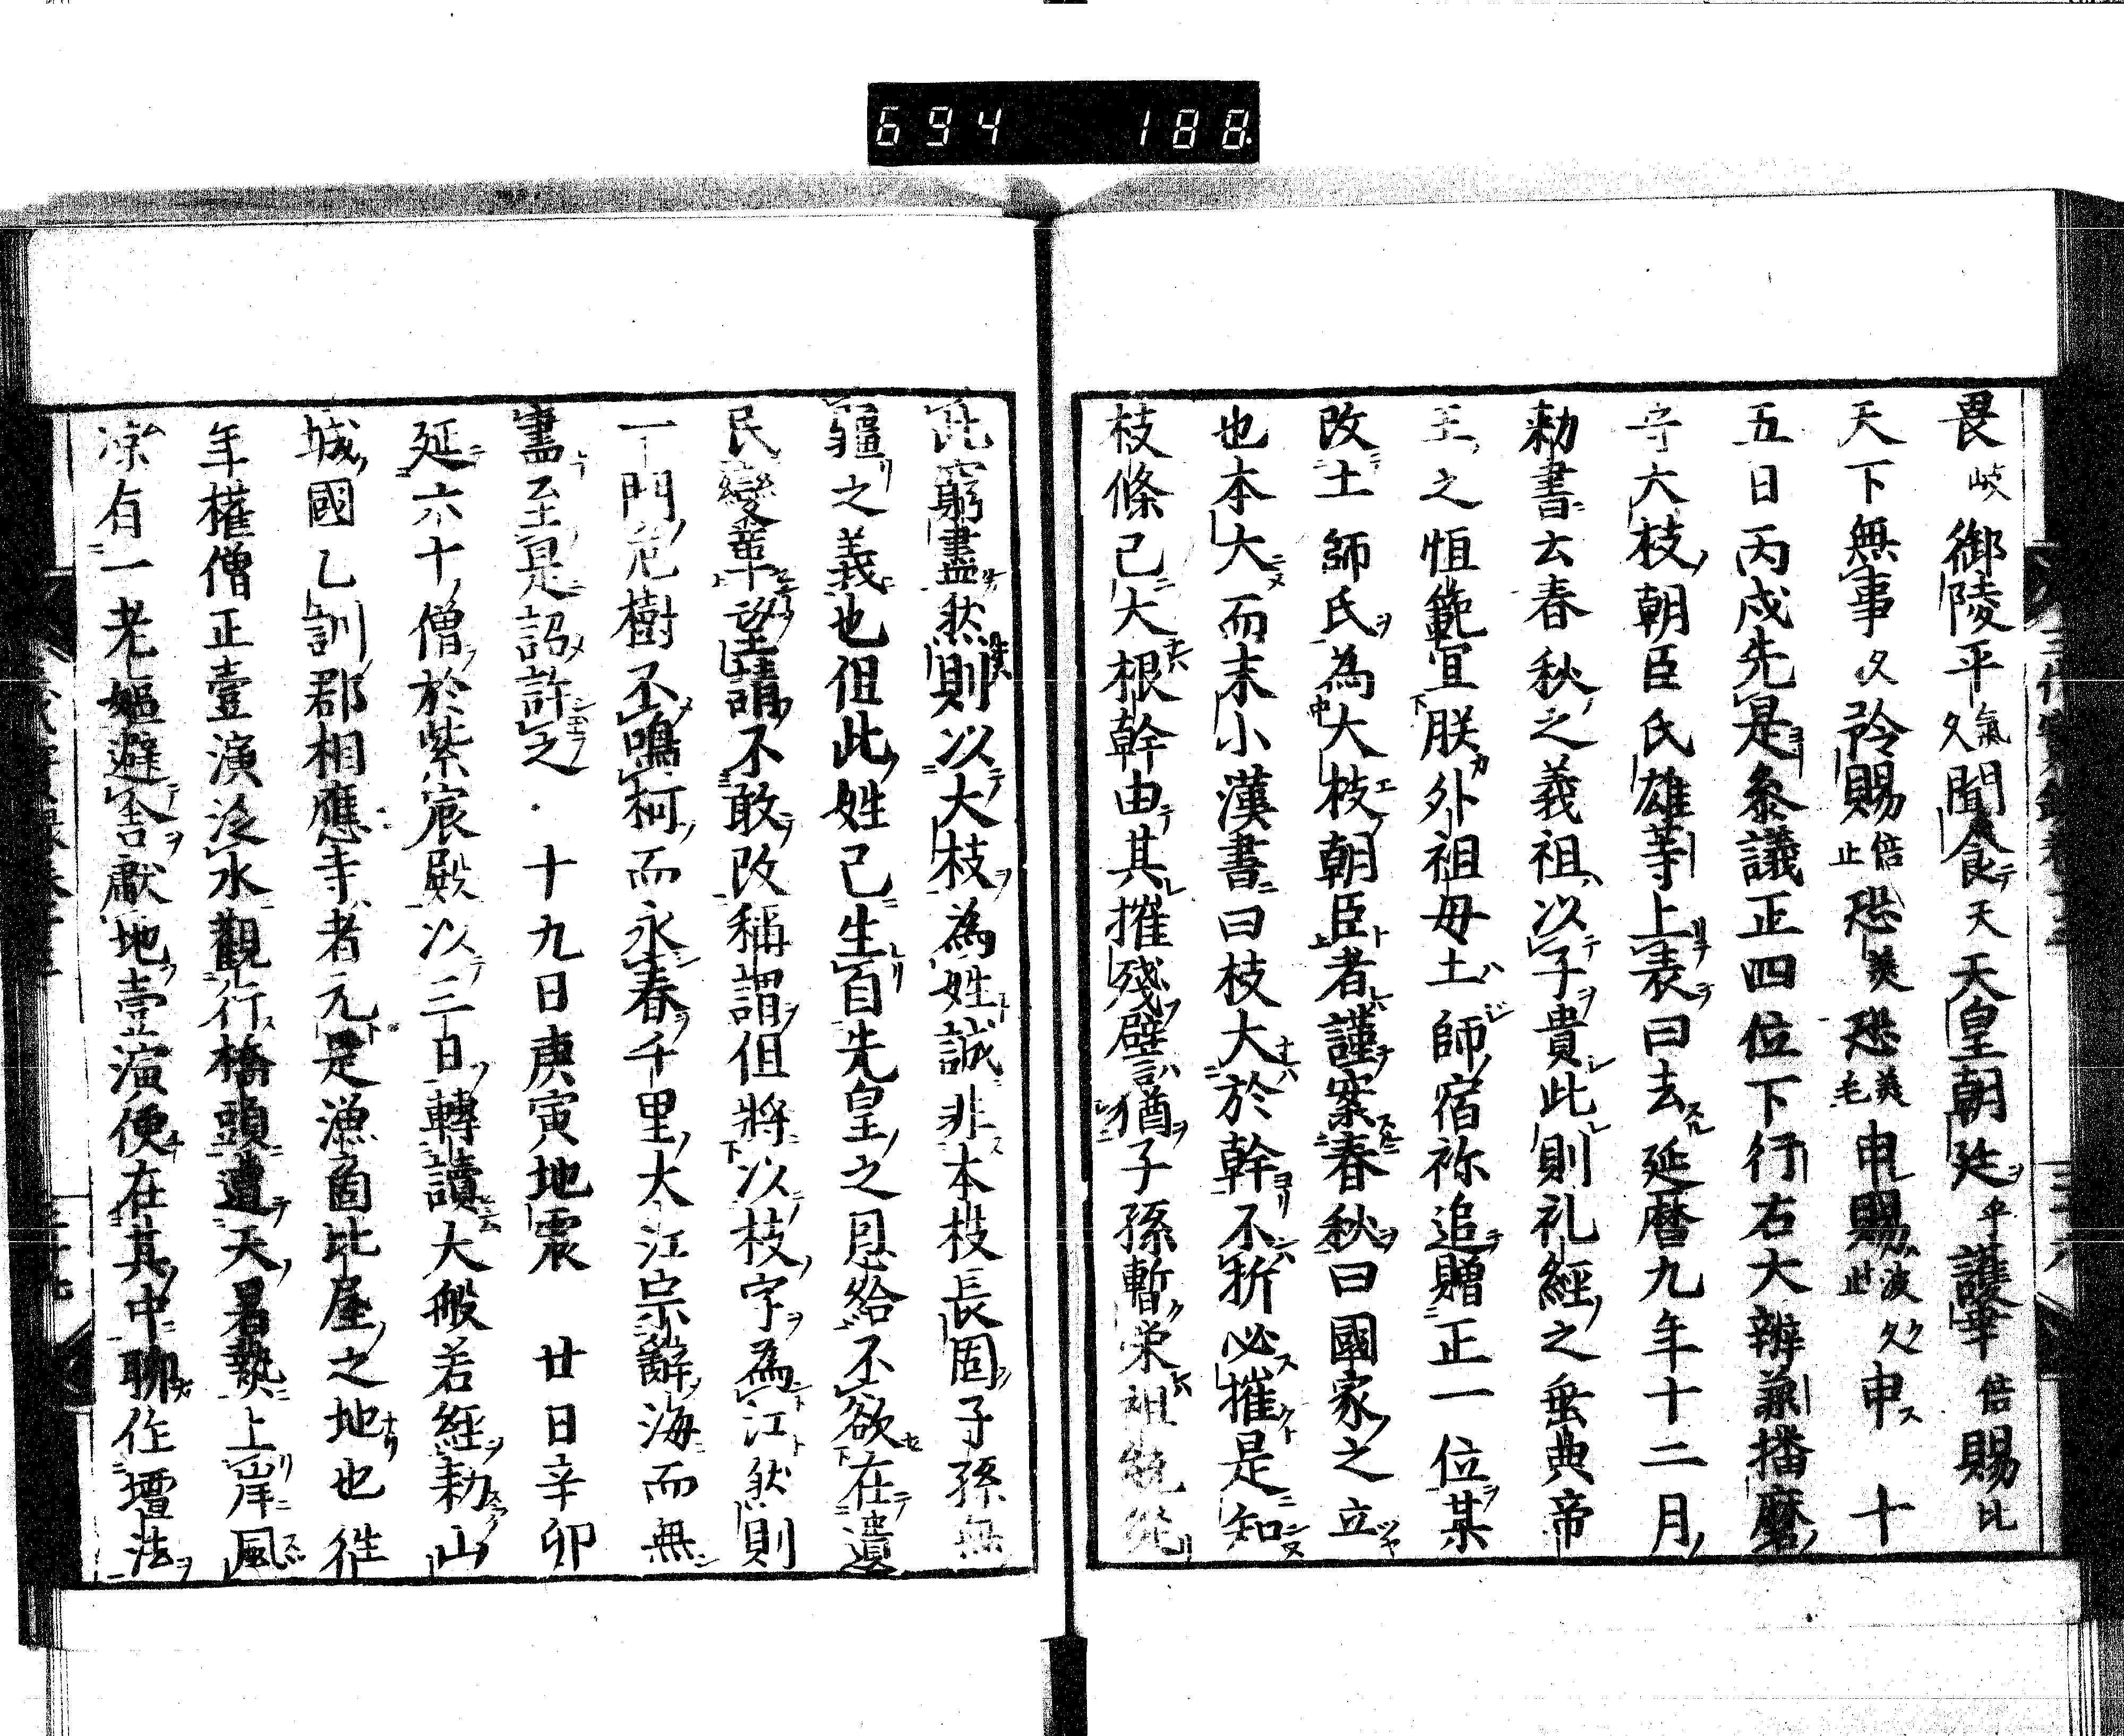 694 188
畏岐御陵平氣久聞食天天皇朝廷乎護幸倍賜比
天下無事久矜賜倍止恐美恐美毛申賜波久止申 十
五日丙戌先是參議正四位下行右大辨兼播磨
守大枝朝臣氏雄等上表曰去延暦九年十二月
勅書云春秋之義祖以子貴此則礼經之垂典帝
王之恒範宜朕外祖母土師宿祢追贈正一位某
改土師氏為大枝朝臣者謹案春秋曰國家之立
也本大而末小漢書曰枝大於幹不折必摧是知
枝條已大根幹由其摧殘譬猶子孫暫栄祖統從
此窮盡然則以大枝為姓誠非本枝長固子孫無
疆之義也但此姓已生百先皇之恩給不欲在遺
民變革望請不敢改稱謂但將以枝字為江然則
一門危樹不鳴柯而永春千里大江宗辭海而無
盡至是詔許之 十九日庚寅地震 廿日辛卯
延六十僧於紫宸殿以三日轉讀大般若經勅山
城國乙訓郡相應寺者元是漁商比屋之地也往
年權僧正壹演泛水觀行橋頭遭天暑熱上岸風
凉有一老嫗避舎獻地壹演便在其中聊作壇法